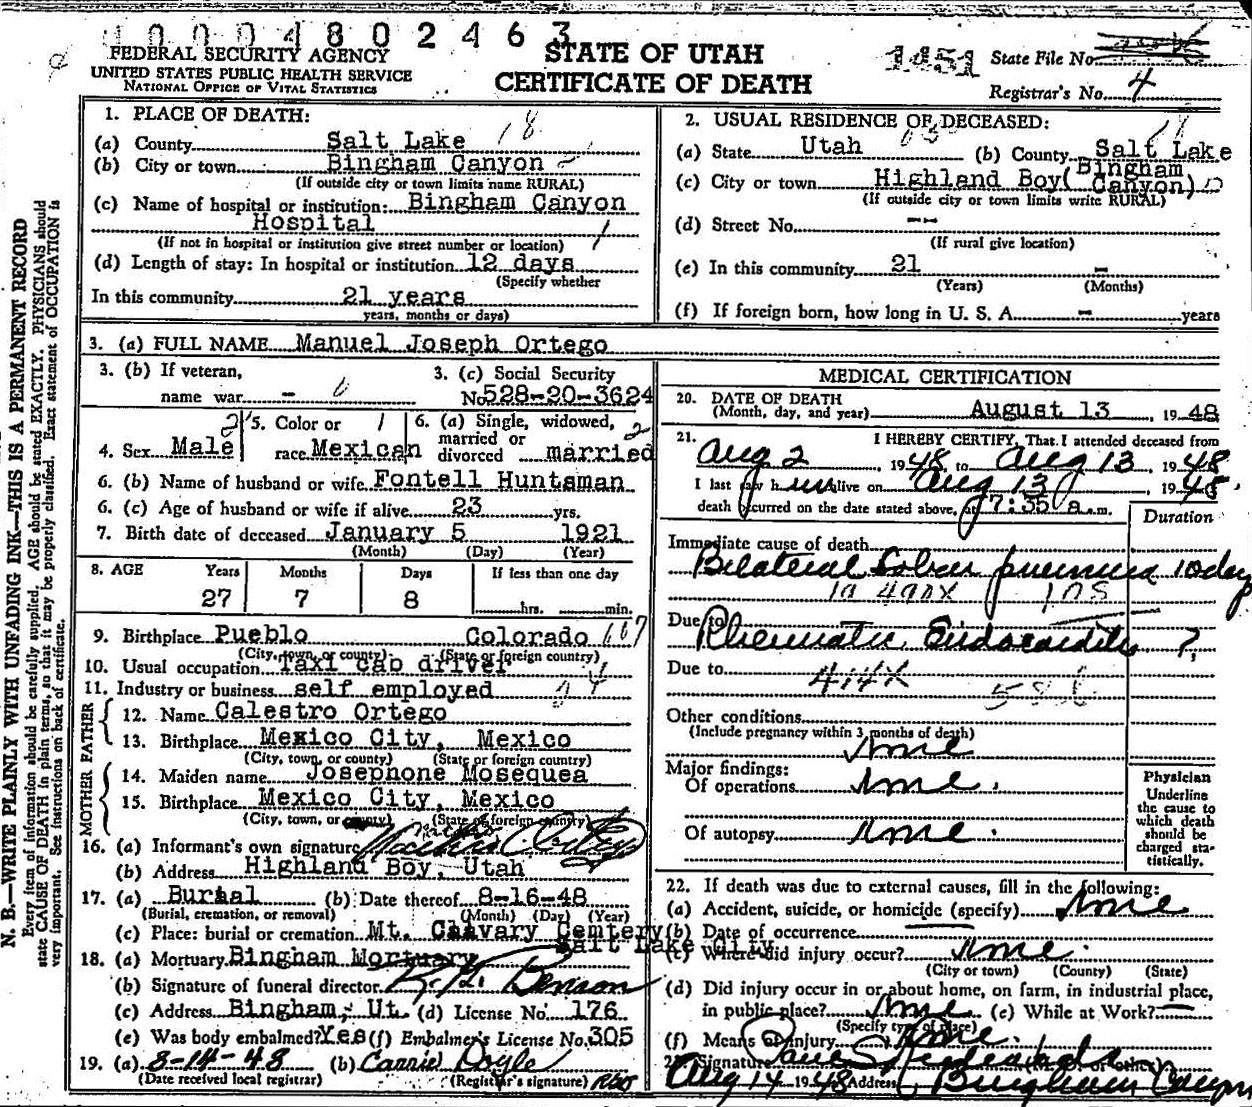 00004802463
FEDERAL SECURITY AGENCY
UNITED STATES PUBLIC HEALTH SERVICE
NATIONAL OFFICE OF VITAL STATISTICS
STATE OF UTAH
CERTIFICATE OF DEATH
1451
State File No.
Registrar's No. 4
N. B.—WRITE PLAINLY WITH UNFADING INK—THIS IS A PERMANENT RECORD
Every item of information should be carefully supplied. AGE should be stated EXACTLY. PHYSICIANS should
state CAUSE OF DEATH in plain terms, so that it may be properly classified. Exact statement of OCCUPATION is
very important. See instructions on back of certificate.
1. PLACE OF DEATH:
(a) County Salt Lake 18
(b) City or town Bingham Canyon
(If outside city or town limits name RURAL)
(c) Name of hospital or institution: Bingham Canyon
Hospital 1
(If not in hospital or institution give street number or location)
(d) Length of stay: In hospital or institution 12 days
(Specify whether
In this community 21 years
years, months or days)
2. USUAL RESIDENCE OF DECEASED:
(a) State Utah (b) County Salt Lake
(c) City or town Highland Boy (Bingham
Canyon)
(If outside city or town limits write RURAL)
(d) Street No. --
(If rural give location)
(e) In this community 21 -
(Years) (Months)
(f) If foreign born, how long in U. S. A. - years
3. (a) FULL NAME Manuel Joseph Ortego
3. (b) If veteran,
name war -
3. (c) Social Security
No. 528-20-3624
4. Sex Male 2
5. Color or
race Mexican 1
6. (a) Single, widowed,
married or
divorced married 2
6. (b) Name of husband or wife Fontell Huntsman
6. (c) Age of husband or wife if alive 23 yrs.
7. Birth date of deceased January 5 1921
(Month) (Day) (Year)
8. AGE Years Months Days If less than one day
27 7 8 hrs. min.
9. Birthplace Pueblo Colorado
(City, town, or county) (State or foreign country)
10. Usual occupation Taxi cab driver
11. Industry or business self employed
FATHER
12. Name Calestro Ortego
13. Birthplace Mexico City, Mexico
(City, town, or county) (State or foreign country)
MOTHER
14. Maiden name Josephone Mosequea
15. Birthplace Mexico City, Mexico
(City, town, or county) (State or foreign country)
16. (a) Informant's own signature
(b) Address Highland Boy, Utah
17. (a) Burial (b) Date thereof 8-16-48
(Burial, cremation, or removal) (Month) (Day) (Year)
(c) Place: burial or cremation Mt. Calvary Cemtery
Salt Lake City
18. (a) Mortuary Bingham Mortuary
(b) Signature of funeral director Benson
(c) Address Bingham, Ut. (d) License No. 176
(e) Was body embalmed? Yes (f) Embalmer's License No. 305
19. (a) 8-14-48 (b) Carrie Doyle
(Date received local registrar) (Registrar's signature)
MEDICAL CERTIFICATION
20. DATE OF DEATH
(Month, day, and year) August 13, 1948
21. I HEREBY CERTIFY, That I attended deceased from
Aug 2, 1948, to Aug 13, 1948
I last saw him alive on Aug 13 1948.
death occurred on the date stated above, at 7:35 a.m.
Duration
Immediate cause of death
Bilateral Lobar pneumonia 10 days
Due to
Rheumatic Endocarditis ?
Due to 414X
Other conditions
(Include pregnancy within 3 months of death)
None
Major findings:
Of operations None.
Of autopsy None.
Physician
Underline
the cause to
which death
should be
charged sta-
tistically.
22. If death was due to external causes, fill in the following:
(a) Accident, suicide, or homicide (specify) None
(b) Date of occurrence
(c) Where did injury occur? None.
(City or town) (County) (State)
(d) Did injury occur in or about home, on farm, in industrial place,
in public place? None (e) While at Work?
(Specify type of place)
(f) Means of injury None.
Signature (M. D. or other)
Aug 14 1948 Address Bingham Canyon